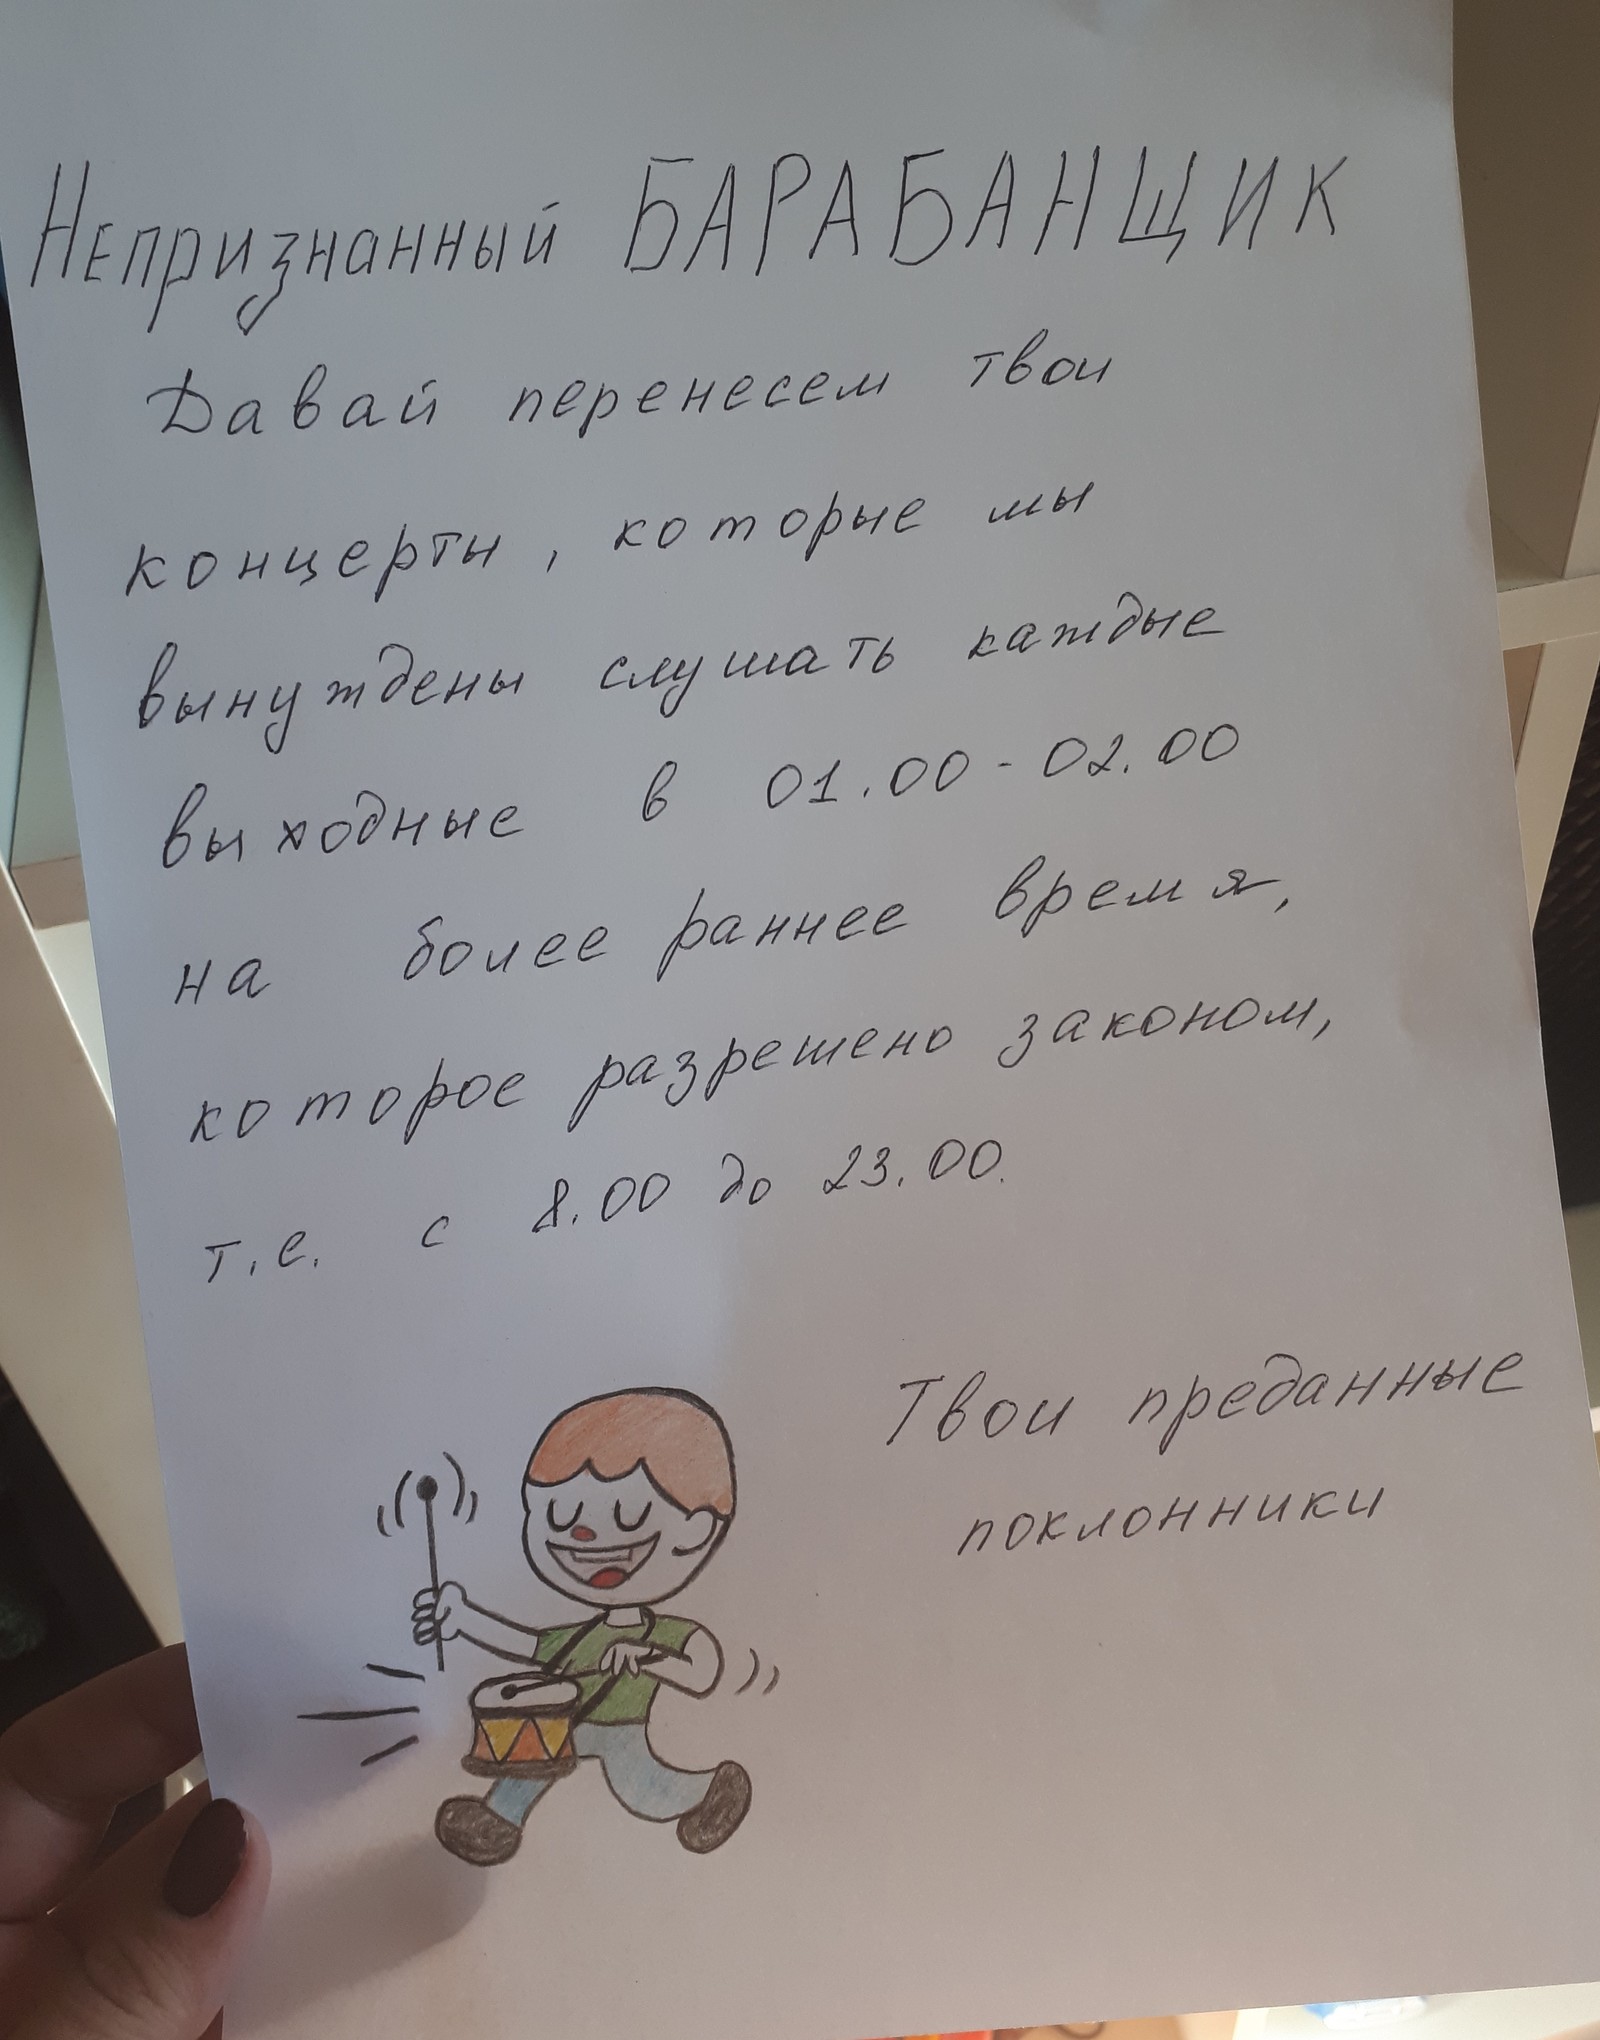 Непризнанный БАРАБАНЩИК
Давай перенесем твои
концерты, которые мы
вынуждены слушать каждые
выходные в 01.00-02.00
на более раннее время,
которое разрешено законом,
т.е. с 8.00 до 23.00.
Твои преданные
поклонники